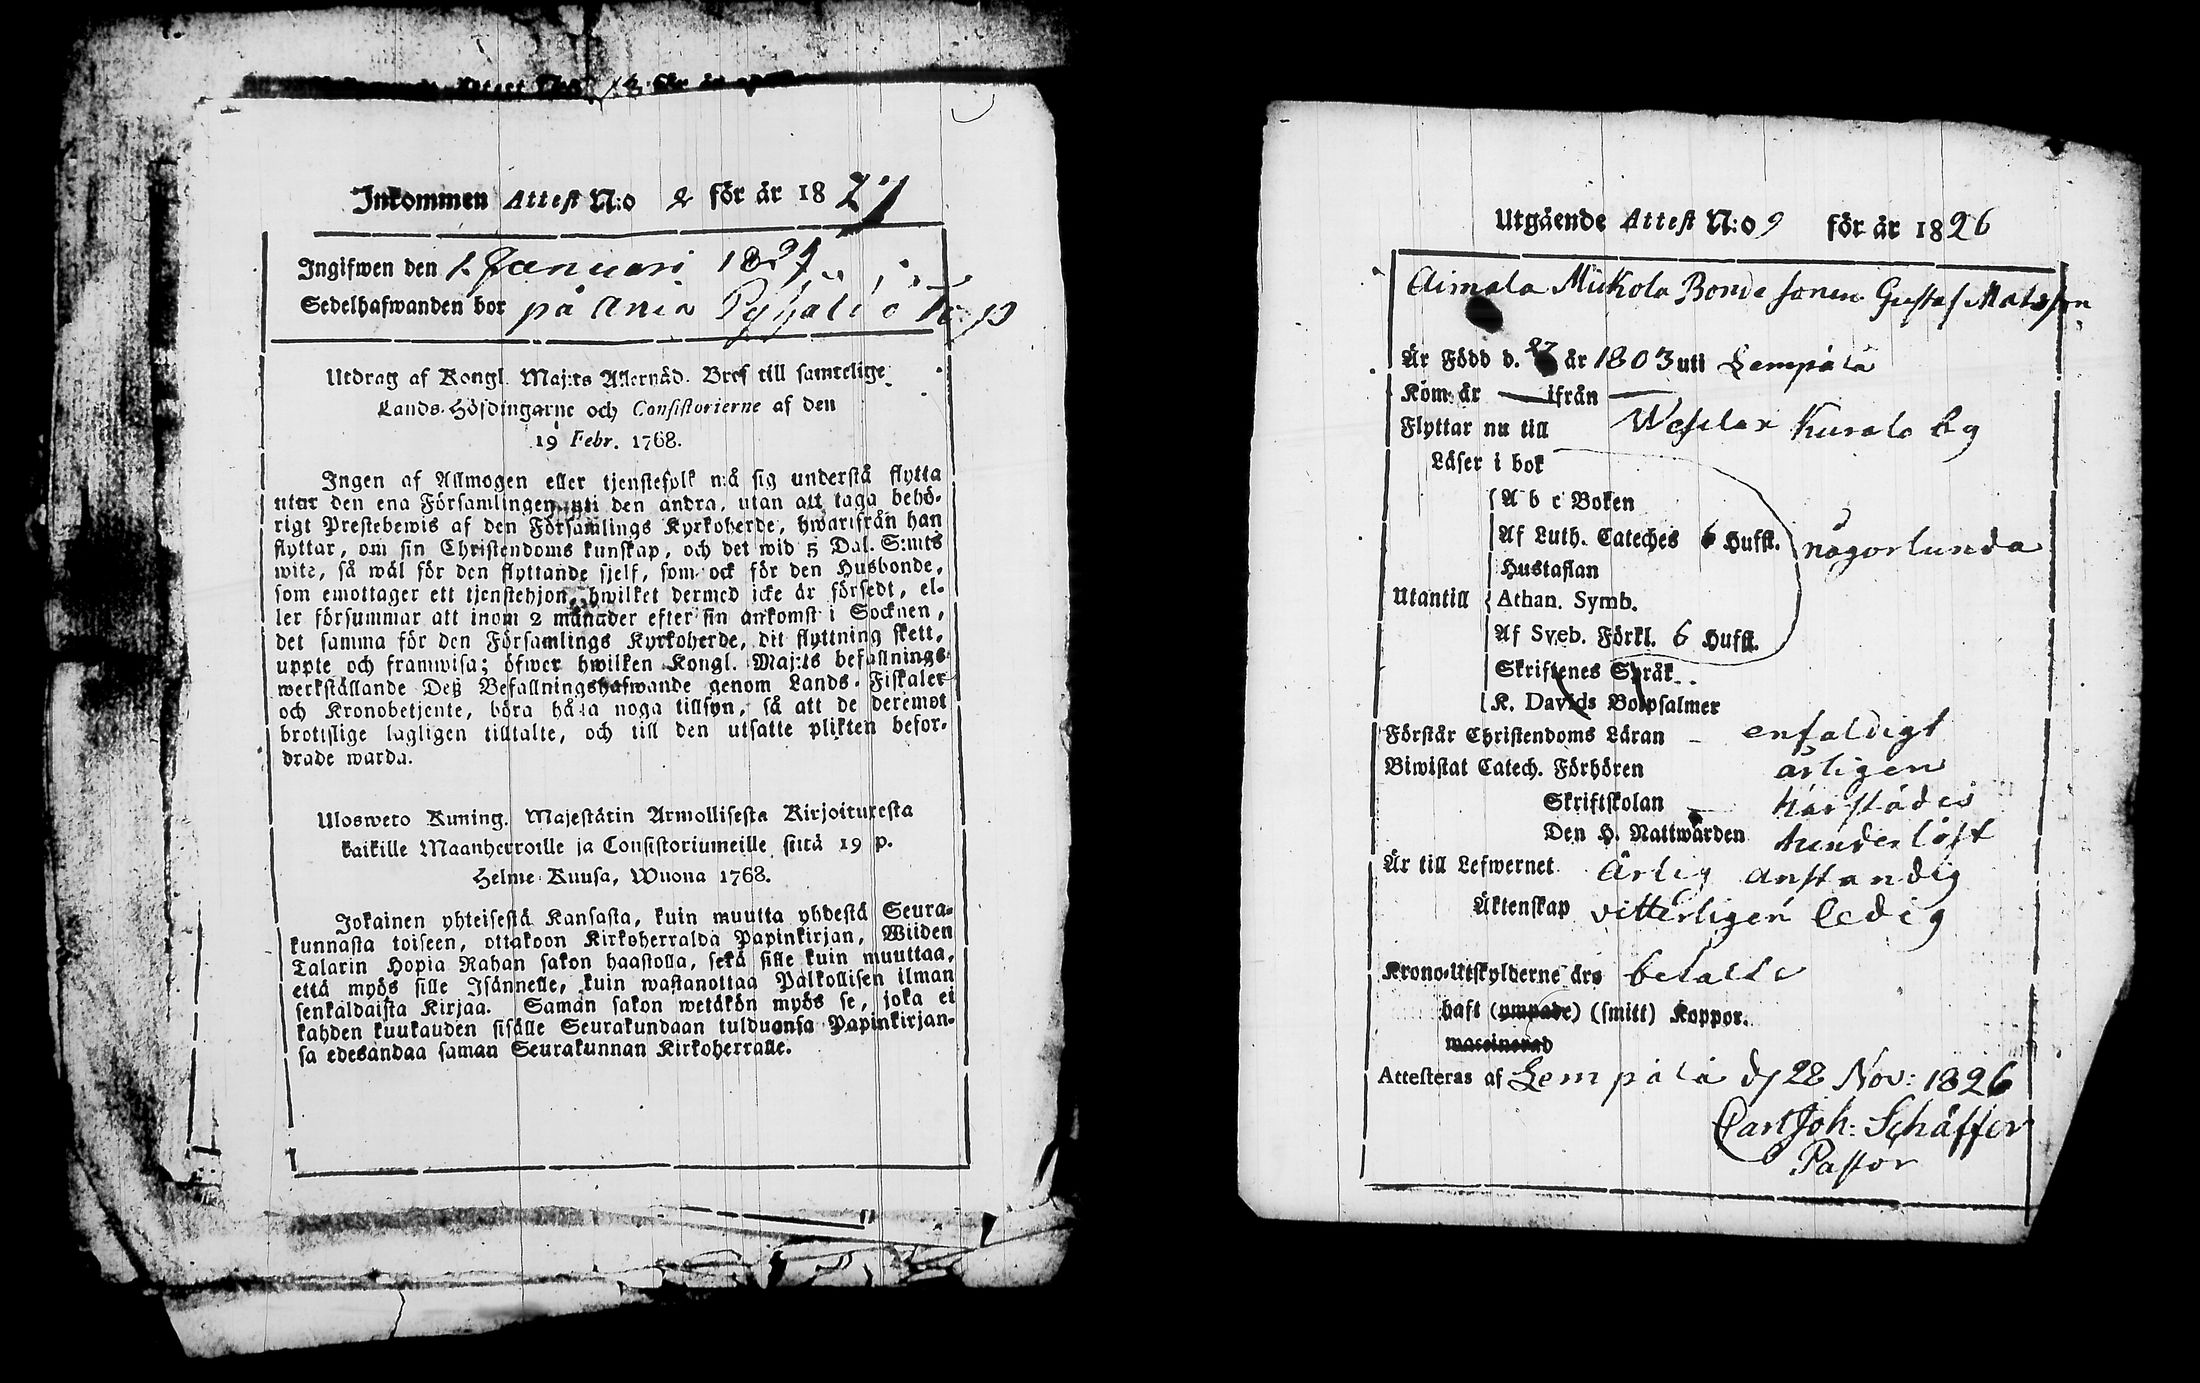 Inkommen Attest N:o 2 för år 1827
Ingifwen den 1. Januari 1827.
Sedelhafwanden bor på Ania
Utdrag af Kongl. Maj:ts Allernåd. Bref till samtelige
Lands-Höfdingarne och Consistorierne af den
19 Febr. 1768.
Ingen af Allmogen eller tjenstefolk må sig understå flytta
utur den ena Församlingen uti den andra, utan att taga behö-
rigt Prestebewis af den Församlings Kyrkoherde, hwarifrån han
flyttar, om sin Christendoms kunskap, och det wid 5 Dal. S:mts
wite, så wäl för den flyttande sjelf, som ock för den Husbonde,
som emottager ett tjenstehjon, hwilket dermed icke är försedt, el-
ler försummar att inom 2 månader efter sin ankomst i Socknen,
det samma för den Församlings Kyrkoherde, dit flyttning skett,
uppte och framwisa; öfwer hwilken Kongl. Maj:ts befallnings
werkställande Deß Befallningshafwande genom Lands-Fiskaler
och Kronobetjente, böra hålla noga tillsyn, så att de deremot
brottslige lagligen tilltalte, och till den utsatte plikten befor-
drade warda.
Ulosweto Kuning. Majestätin Armollisesta Kirjoituresta
kaikille Maanherroille ja Consistoriumeille siitä 19 p.
Helme Kuusa, Wuona 1768.
Jokainen yhteisestä Kansasta, kuin muutta yhdestä Seura-
kunnasta toiseen, ottakoon Kirkoherralda Papinkirjan, Wiiden
Talarin Hopia Rahan sakon haastolla, sekä sille kuin muuttaa,
että myös sille Isännelle, kuin wastanottaa Palkollisen ilman
senkaldaista Kirjaa. Saman sakon wetäkön myös se, joka ei
kahden kuukauden sisälle Seurakundaan tulduansa Papinkirjan-
sa edesandaa saman Seurakunnan Kirkoherralle.
Utgående Attest N:o 9 för år 1826
Aimala Mickola Bonde sonen Gustaf Matsson
Är Född d. 27 år 1803 uti Lempälä
Kom: år — ifrån —
Flyttar nu till Kurala by
Läser i bok
A b c Boken
Af Luth. Cateches 6 Hufst. någorlunda
Hustaflan
Utantill Athan. Symb.
Af Sveb. Förkl. 6 Hufst.
Skriftenes Språk
K. Davids Botpsalmer
Förstår Christendoms Läran – enfaldigt
Biwistat Catech. Förhören årligen
Skriftskolan härstädes
Den H. Nattwarden
Är till Lefwernet Ärlig anständig
Äktenskap vitterligen ledig
Krono-Utskylderne äro betalte
haft (ympade) (smitt) Koppor.
waccinerad
Attesteras af Lempälä d 28 Nov: 1826
Carl Joh: Schäffer
Pastor